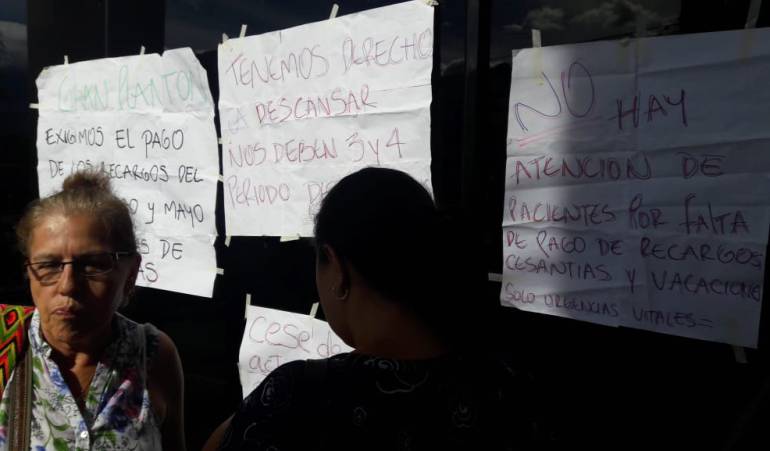 GRAN PLANTON
EXIGIMOS EL PAGO
DE LOS RECARGOS DEL
Y MAYO
DE
TENEMOS DERECHO
A DESCANSAR
NOS DEBEN 3 Y 4
PERIODO
Cese de
NO HAY
ATENCION DE
PACIENTES POR FALTA
DE PAGO DE RECARGOS
CESANTIAS Y VACACIONE
SOLO URGENCIAS VITALES=